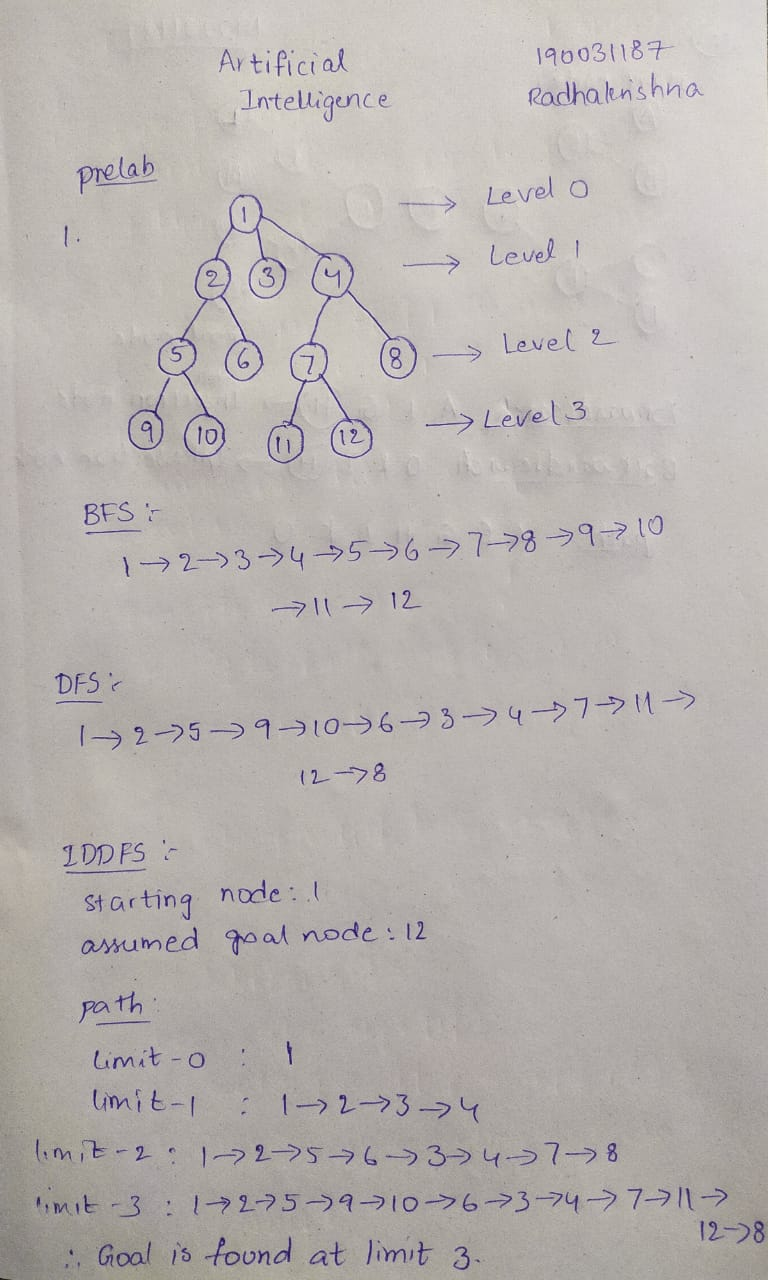 Artificial
Intelligence
190031187
Radhakrishna
prelab
1.
1 → Level 0
2 3 4 → Level 1
5 6 7 8 → Level 2
9 10 11 12 → Level 3
BFS :-
1→2→3→4→5→6→7→8→9→10
→11→12
DFS :-
1→2→5→9→10→6→3→4→7→11→
12→8
IDDFS :-
starting node: 1
assumed goal node: 12
path:
limit-0 : 1
limit-1 : 1→2→3→4
limit-2 : 1→2→5→6→3→4→7→8
limit-3 : 1→2→5→9→10→6→3→4→7→11→
12→8
∴ Goal is found at limit 3.